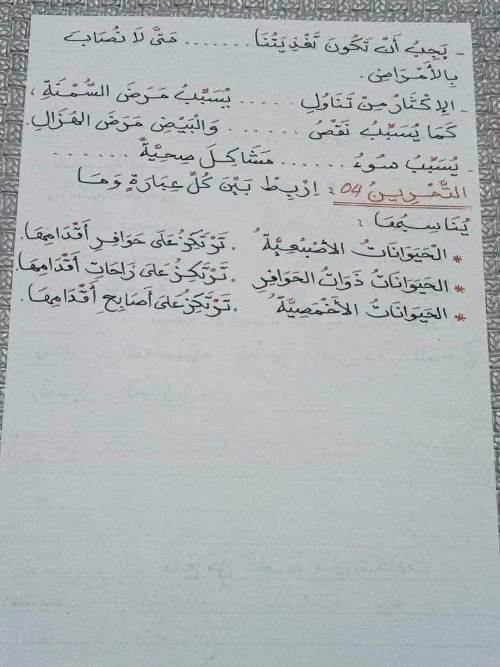 - يَجِبُ أَنْ تَكُونَ تَغْذِيَتُنَا ....... حَتَّى لَا نُصَابَ
بِالأَمْرَاضِ.
- الإِكْثَارُ مِنْ تَنَاوُلِ ..... يُسَبِّبُ مَرَضَ السُّمْنَةِ،
كَمَا يُسَبِّبُ نَقْصُ ...... وَالبَيْضِ مَرَضَ الهُزَالِ.
- يُسَبِّبُ سُوءُ ....... مَشَاكِلَ صِحِّيَّةٌ ......
التَّمْرِينُ 04: اِرْبِطْ بَيْنَ كُلِّ عِبَارَةٍ وَمَا
يُنَاسِبُهَا:
* الْحَيَوَانَاتُ الأُصْبُعِيَّةُ . تَرْتَكِزُ عَلَى حَوَافِرِ أَقْدَامِهَا.
* الحَيَوَانَاتُ ذَوَاتُ الحَوَافِرِ . تَرْتَكِزُ عَلَى رَاحَاتِ أَقْدَامِهَا.
* الحَيَوَانَاتُ الأَخْمَصِيَّةُ . تَرْتَكِزُ عَلَى أَصَابِعِ أَقْدَامِهَا.